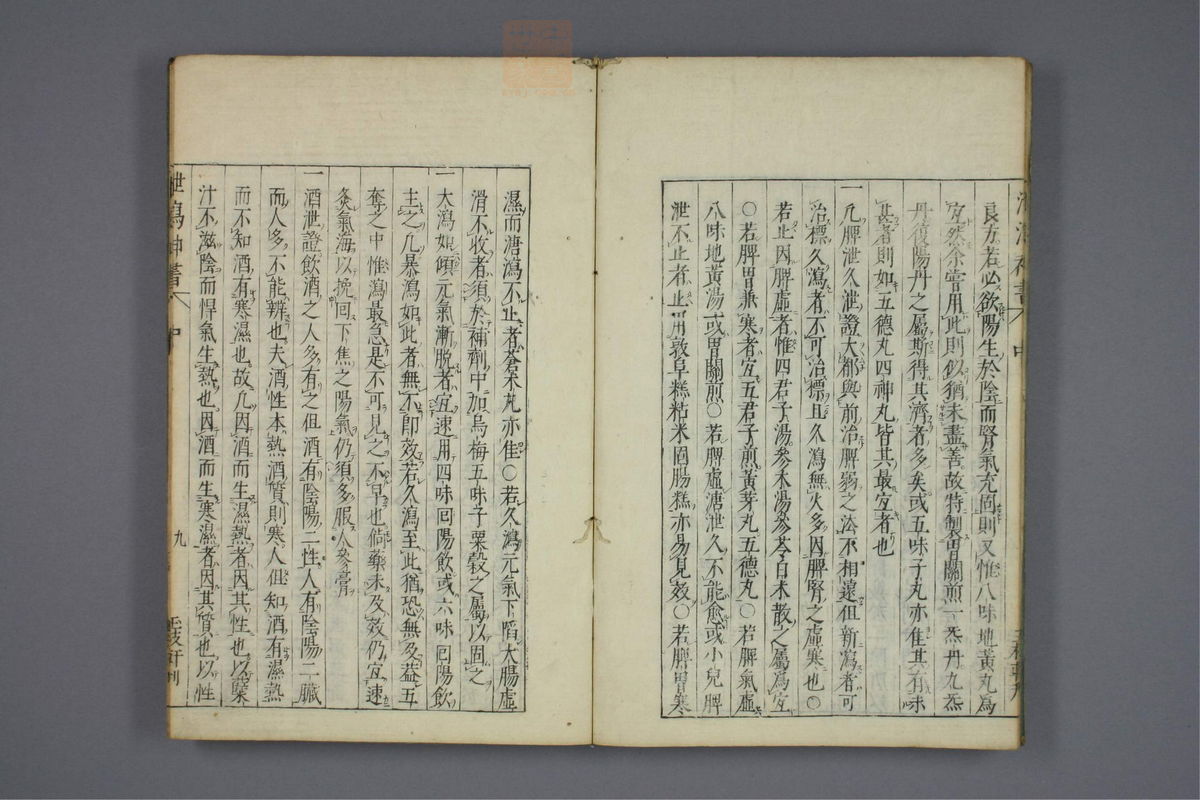 良方若必欲陽生於陰而腎氣充固則又惟八味地黃丸爲
宜然余嘗用此則似猶未盡善故特製胃關煎一炁丹九炁
丹復陽丹之屬斯得其濟者多矣或五味子丸亦佳其有味
甚者則如五德丸四神丸皆其最宜者也
一凡脾泄久泄證大都與前治脾弱之法不相遠但新瀉者可
治標久瀉者不可治標且久瀉無火多因脾腎之虛寒也○
若止因脾虛者惟四君子湯參朮湯參苓白朮散之屬爲宜
○若脾胃兼寒者宜五君子煎黃芽丸五德丸○若脾氣虛
八味地黃湯或胃關煎○若脾虛溏泄久不能愈或小兒脾
泄不止者止用敦阜糕粘米固腸糕亦易見效○若脾胃寒
濕而溏瀉不止者蒼朮丸亦佳○若久瀉元氣下陷大腸虛
滑不收者須於補劑中加烏梅五味子粟殼之屬以固之
一大瀉如傾元氣漸脫者宜速用四味回陽飲或六味回陽飲
主之凡暴瀉如此者無不即效若久瀉至此猶恐無及蓋五
奪之中惟瀉最急是不可見之不早也倘藥未及效仍宜速
灸氣海以挽回下焦之陽氣仍須多服人參膏
一酒泄證飲酒之人多有之但酒有陰陽二性人有陰陽二臟
而人多不能辨也夫酒性本熱酒質則寒人但知酒有濕熱
而不知酒有寒濕也故凡因酒而生濕熱者因其性也以蘗
汁不滋陰而悍氣生熱也因酒而生寒濕者因其質也以性
泄瀉神書 中 九